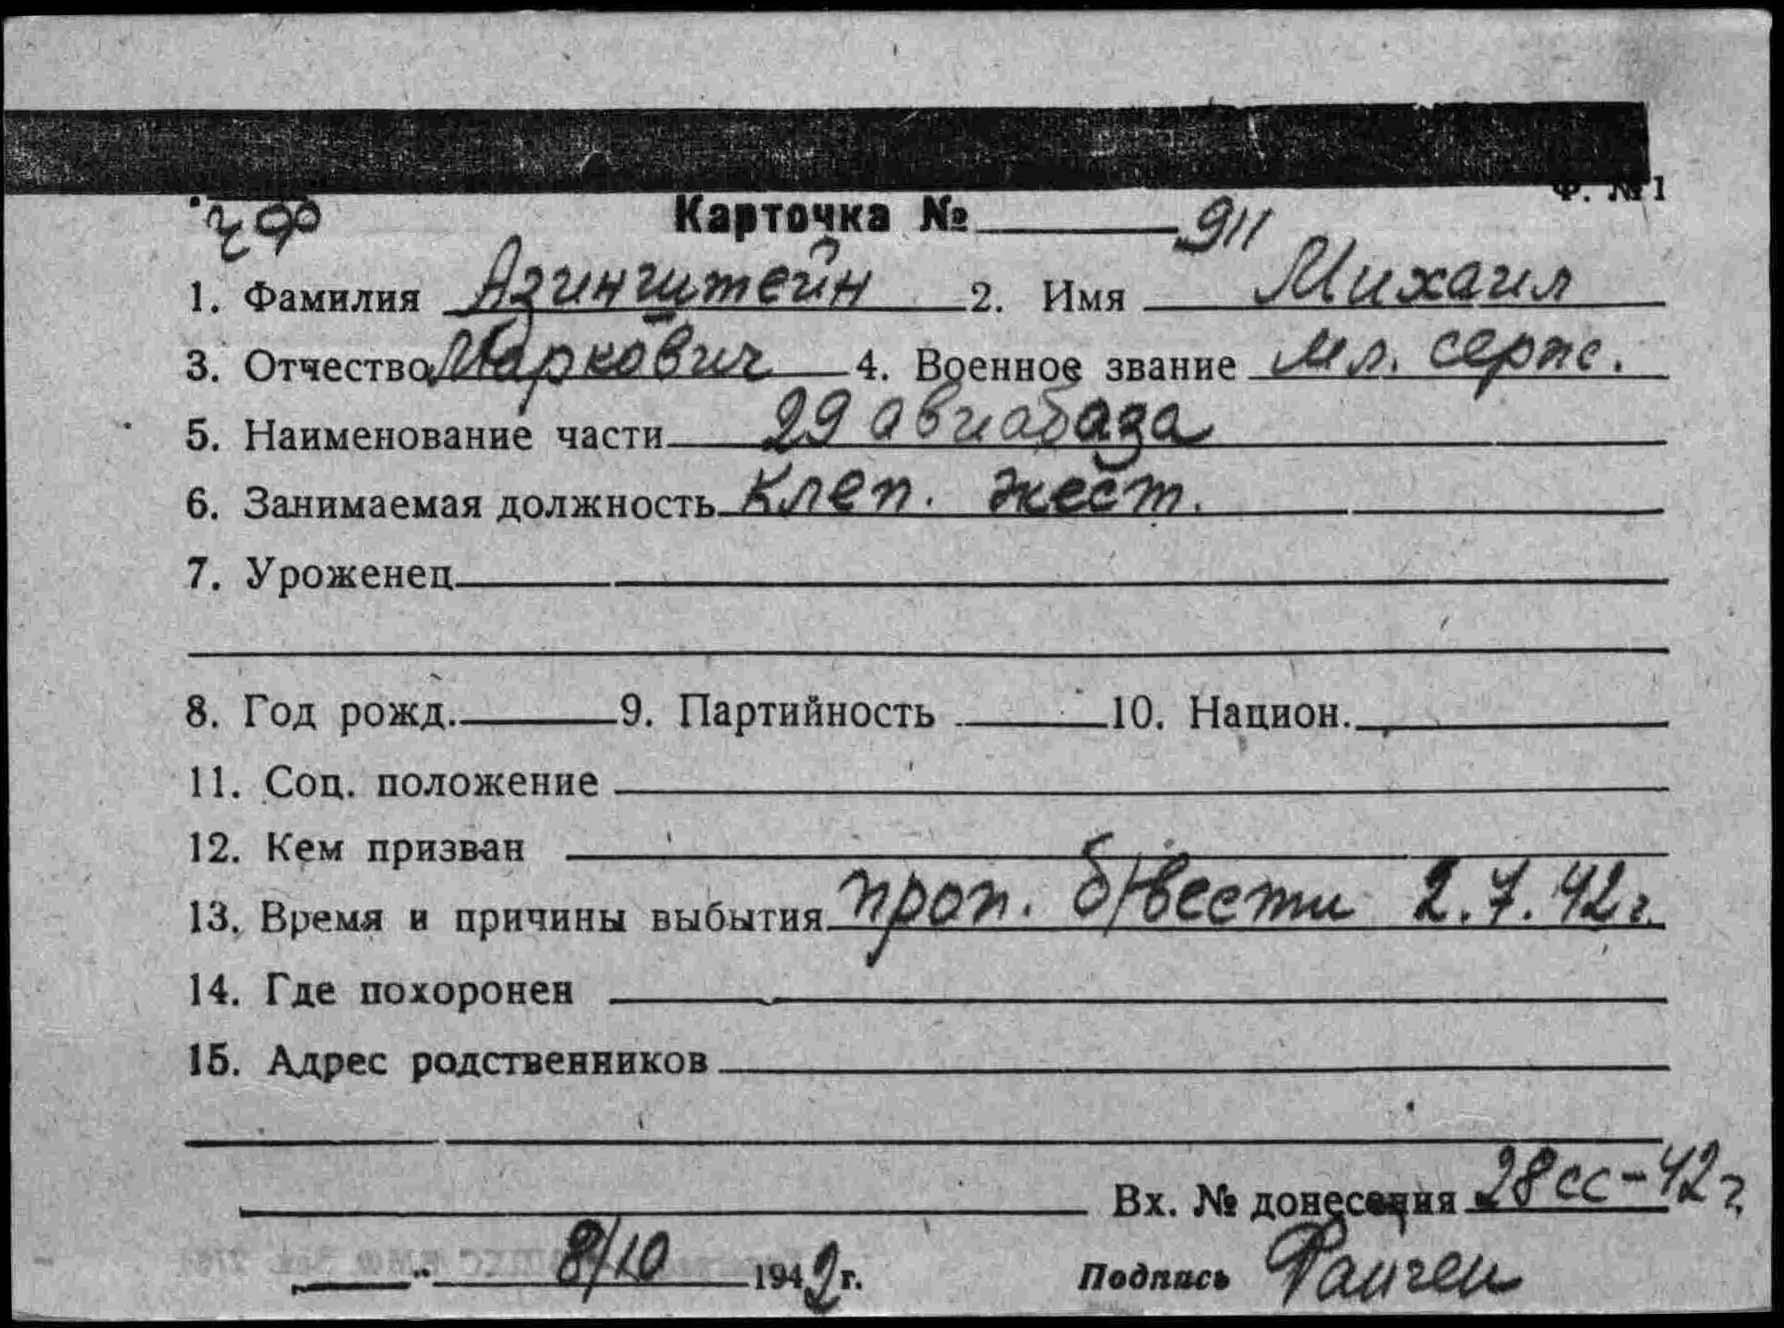 Ф. № 1
ЧФ
Карточка № 911
1. Фамилия Азинштейн 2. Имя Михаил
3. Отчество Маркович 4. Военное звание мл. серж.
5. Наименование части 29 авиабаза
6. Занимаемая должность клеп. жест.
7. Уроженец
8. Год рожд. 9. Партийность 10. Национ.
11. Соц. положение
12. Кем призван
13. Время и причины выбытия проп. б/вести 2.7.42г.
14. Где похоронен
15. Адрес родственников
Вх. № донесения 28сс-42г.
8/10 1942г. Подпись